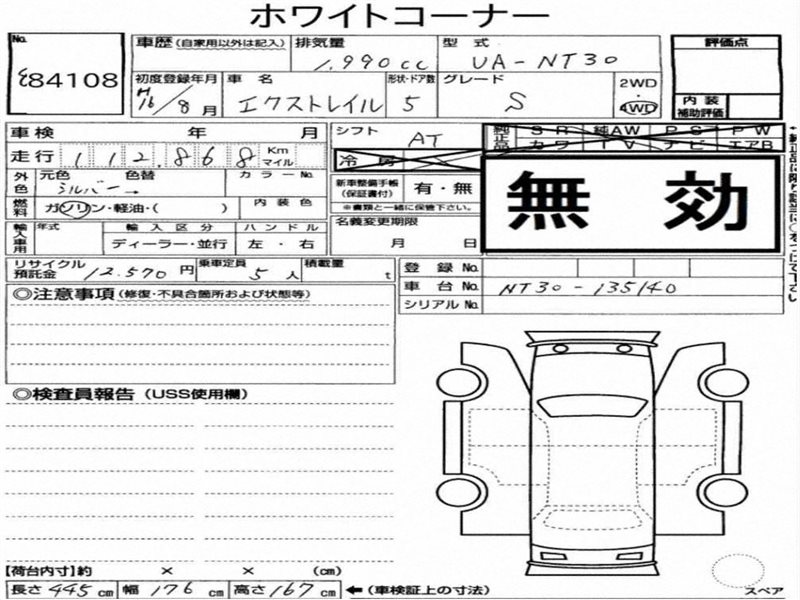 ホワイトコーナー
No.
84108
車歴(自家用以外は記入) 排気量 1,990cc 型式 UA-NT30
評価点
初度登録年月 H16/8月 車名 エクストレイル 形状・ドア数 5 グレード S 2WD・4WD
内装補助評価
車検 年 月 シフト AT
純正品 SR 純AW PS PW
カワ TV ナビ エアB
走行 112,868 Km マイル 冷房
外色 元色 シルバー 色替 カラーNo.
新車整備手帳(保証書付) 有・無
※書類と一緒に保管下さい。
無効
燃料 ガソリン・軽油・( ) 内装色
名義変更期限 月 日
輸入車用 年式 輸入区分 ハンドル
ディーラー・並行 左・右
リサイクル預託金 12,570円 乗車定員 5人 積載量 t
登録No.
車台No. NT30-135140
シリアルNo.
◎注意事項(修復・不具合箇所および状態等)
◎検査員報告(USS使用欄)
【荷台内寸】約 × × (cm)
長さ 445cm 幅 176cm 高さ 167cm ←(車検証上の寸法)
スペア